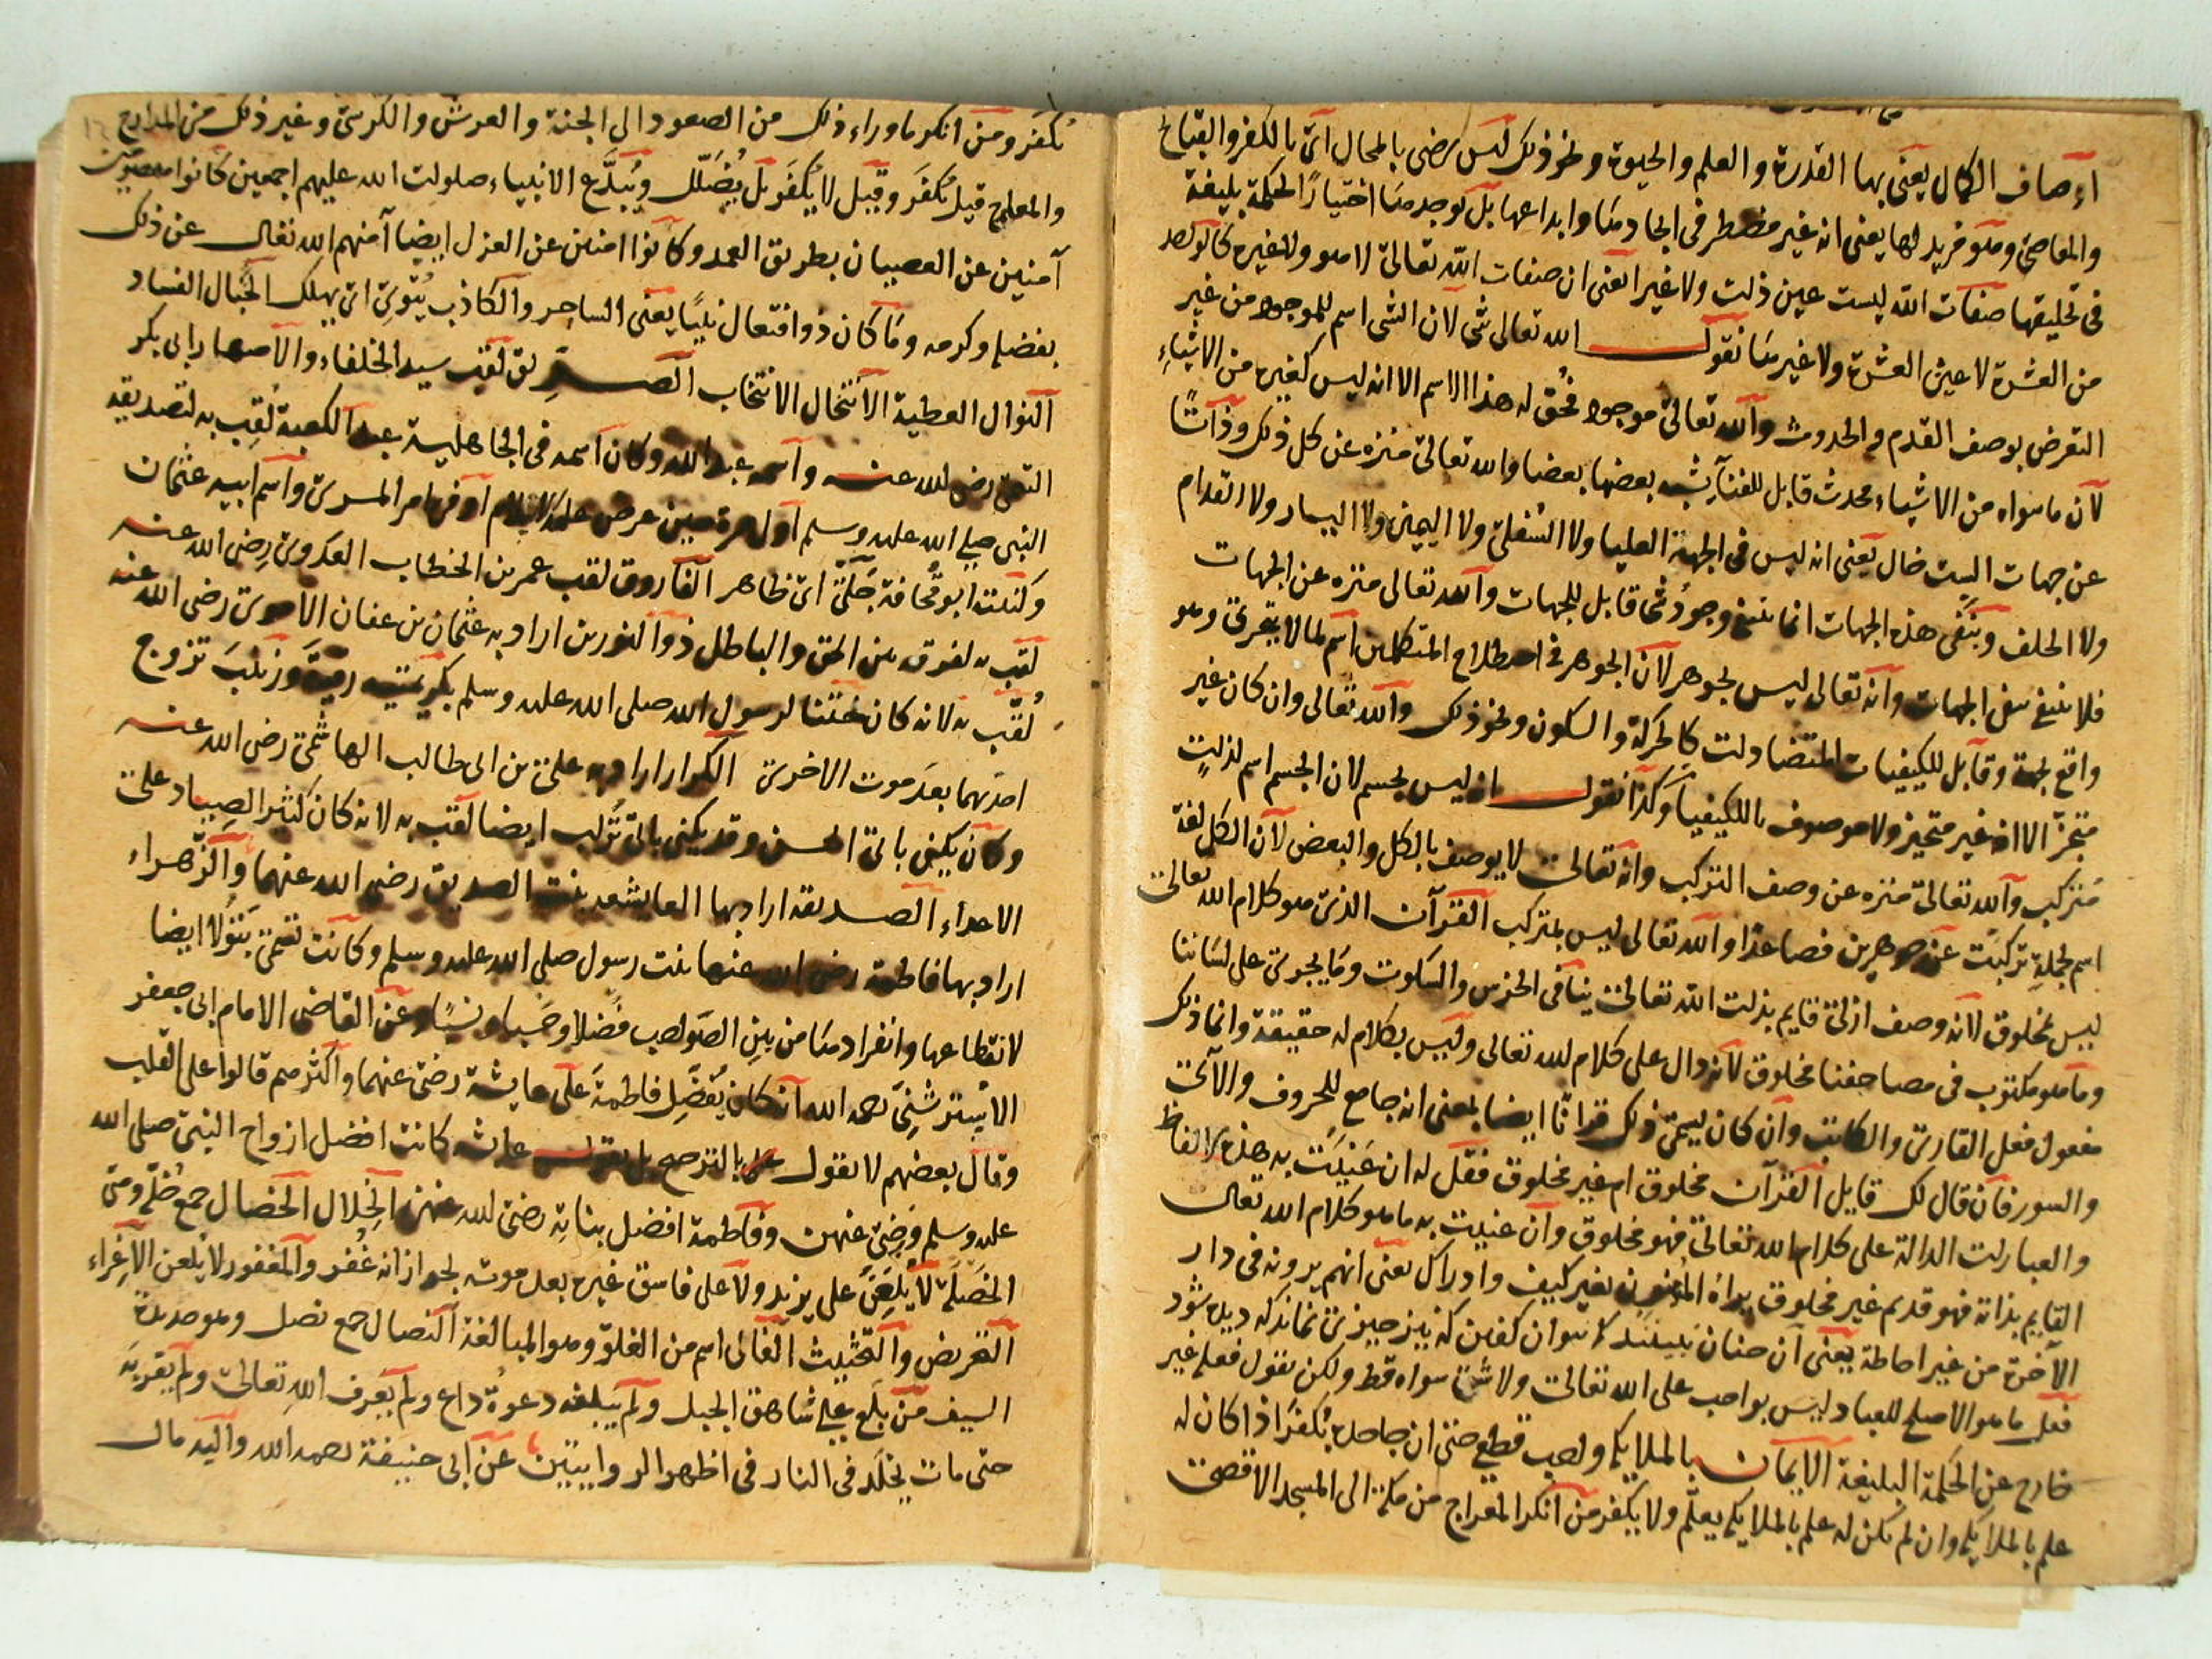 اوصاف الكمال يعنى بها القدرة والعلم والحيوة ونحو ذلك ليس يرضى بالمحال اى بالكفر والقبايح
والمعاصى وهو مريد لها يعنى انه غير مضطر فى ايجادها وابداعها بل توجد منا اختيارًا لحكمة بليغة
فى تخليقها صفات الله ليست عين ذات ولا غير اعنى ان صفات الله تعالى لا هو ولا غيره كالواحد
من العشرة لا عين العشرة ولا غيرها نقول الله تعالى شى لان الشى اسم للموجود من غير
التعرض بوصف القدم والحدوث والله تعالى موجود فحق له هذا الاسم الا انه ليس كغيره من الاشياءِ
لان ما سواه من الاشياء محدث قابل للفناء يشبه بعضها بعضا والله تعالى منزه عن كل ذلك وذاتًا
عن جهات الست خال يعنى انه ليس فى الجهة العليا ولا السُفلى ولا اليمين ولا اليسار ولا القدام
ولا الخلف وبنفى هذه الجهات انما ينتفى وجودُ شئ قابل للجهات والله تعالى منزه عن الجهات
فلا ينتفى بنفى الجهات وانه تعالى ليس بجوهر لان الجوهر فى اصطلاح المتكلمين اسم لما لا يتجزى وهو
واقع بجهة وقابل للكيفيات المتضادات كالحركة والسكون ونحو ذلك والله تعالى وان كان غير
متجزّ الا انه غير متحيز ولا موصوف بالكيفيا وكذا نقول انه ليس بجسم لان الجسم اسم لذاتٍ
مُتركب والله تعالى منزه عن وصف التركب وانه تعالى لا يوصف بالكل والبعض لان الكل لغة
اسم لجملةٍ تركبت عن جوهرين فصاعدًا والله تعالى ليس بمتركب القرآن الذى هو كلام الله تعالى
ليس بمخلوق لانه وصف ازلى قايم بذات الله تعالى ينافى الخرس والسكوت وما يجرى على لساننا
وما هو مكتوب فى مصاحفنا مخلوق لانه دال على كلام لله تعالى وليس بكلام له حقيقة وانما ذلك
مفعول فعل القارى والكاتب وان كان يسمى ذلك قرانًا ايضا بمعنى انه جامع للحروف والآى
والسور فان قال لك قايل القرآن مخلوق ام غير مخلوق فقل له ان عَنيت به هذه الالفاظ
والعبارات الدالة على كلام الله تعالى فهو مخلوق وان عنيت به ما هو كلام الله تعالى
القايم بذاته فهو قديم غير مخلوق يراه المؤمنون بغير كيف وادراك يعنى انهم يرونه فى دار
الآخرة من غير احاطة يعنى ان چنان ببينند كه نتوان كفتن كه نيز چيزى نماند كه ديده شود
فعل ما هو الاصلح للعباد ليس بواجب على الله تعالى ولا شئ سواه قط ولكن نقول فعله غير
خارج عن الحكمة البليغة الايمان بالملايكة واجب قطعى حتى ان جاحده يُكفر اذا كان له
علم بالملايكة وان لم يكن له علم بالملايكة يعلّم ولا يكفر من انكر المعراج من مكة الى المسجد الاقصى
يُكفر ومن انكر ما وراء ذلك من الصعود الى الجنة والعرش والكرسى وغير ذلك من المدارج
والمعارج قيل يُكفر وقيل لا يُكفر بل يُضلل ويُبدَّع الانبياء صلوات الله عليهم اجمعين كانوا معصومين
آمنين عن العصيان بطريق العمد وكانوا امنين عن العزل ايضا آمنهم الله تعالى عن ذلك
بفضله وكرمه وما كان ذو افتعال نبيًا يعنى الساحر والكاذب يُتوى اى يهلك الخبال الفساد
النوال العطية الانتخال الانتخاب الصديق لقب سيد الخلفاء والاصهار ابى بكر
التقى رضى الله عنه واسمه عبد الله وكان اسمه فى الجاهلية عبد الكعبة لُقب به لتصديقه
النبى صلى الله عليه وسلم اول مرة حين عرض عليه الاسلام او فى امر المسرى واسم ابيه عثمان
وكنيته ابو قُحافة جَلىّ اى ظاهر الفاروق لقب عمر بن الخطاب العدوى رضى الله عنه
لقب به لفرقه بين الحق والباطل ذو النورين اراد به عثمان بن عفان الاموى رضى الله عنه
لُقّب به لانه كان ختنا لرسول الله صلى الله عليه وسلم بكريمتيه رقية وزينبَ تزوج
احدٰهما بعدَ موت الاخرى الكرار اراد به على بن ابى طالب الهاشمى رضى الله عنه
وكان يكنى بابى الحسن وقد يكنى بابى تراب ايضا لقب به لانه كان كثير الصِياد على
الاعداء الصديقة اراد بها العايشة بنت الصديق رضى الله عنهما والزهراء
اراد بها فاطمة رضى الله عنها بنت رسول صلى الله عليه وسلم وكانت تسمى بَتُولًا ايضا
لانقطاعها وانفرادها من بين الصواحب فضلا وحَسبا ونسبًا وعن القاضى الامام ابى جعفر
الاُستروشنى رحمه الله انه كان يفضِّل فاطمةَ على عايشة رضى عنهما واكثرهم قالوا على القلب
وقال بعضهم لا نقول بالترجيح بل نقول عايشه كانت افضل ازواج النبى صلى الله
عليه وسلم ورضى عنهن وفاطمة افضل بناته رضى الله عنهن الخِلال الخصال جمع خَلة وهى
الخَصلة لا يُلعَن على يزيد ولا على فاسق غيره بعد موته لجواز انه غُفر والمغفور لا يُلعن الاِغراء
التحريض والتحثيث الغالى اسم من الغلو وهو المبالغة النصال جمع نصل وهو حديدة
السيف من بلغ على شاهق الجبل ولم يبلغه دعوةُ داع ولم يعرف الله تعالى ولم يقر به
حتى مات يخلد فى النار فى اظهر الروايتين عن ابى حنيفة رحمه الله واليه مال